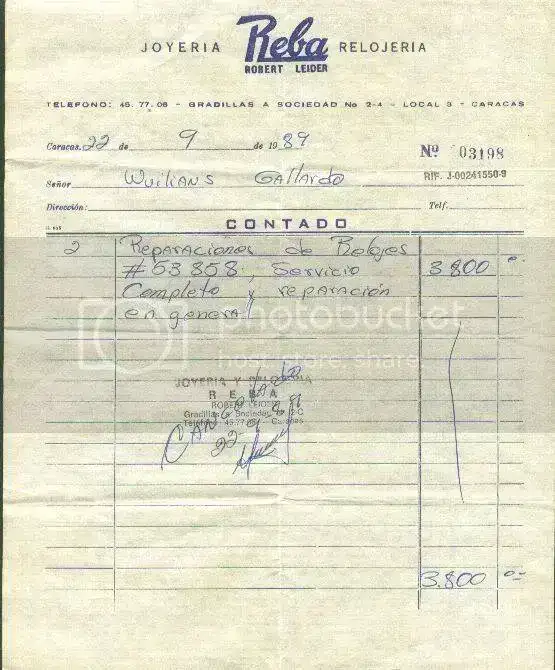 JOYERIA Reba RELOJERIA
ROBERT LEIDER
TELEFONO: 45.77.06 - GRADILLAS A SOCIEDAD No 2-4 - LOCAL 3 - CARACAS
Caracas, 22 de 9 de 1989
Nº 03198
RIF. J-00241550-9
Señor Wuilians Gallardo
Dirección: Telf.
CONTADO
2 Reparaciones de Relojes
#53858, Servicio 3.800 oo
Completo y reparación
en general
photobucket
host. store. share.
JOYERIA Y RELOJERIA
REBA
ROBERT LEIDER
Gradillas a Sociedad
Teléfono 45.77.06 - Caracas
CANCELADO
22-9-89
3.800 oo